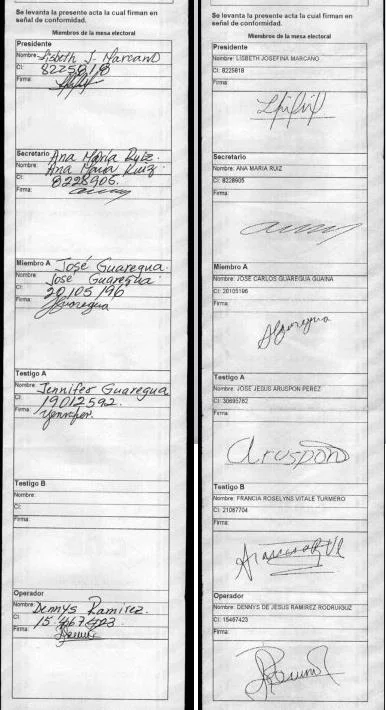 Se levanta la presente acta la cual firman en
señal de conformidad.
Miembros de la mesa electoral
Presidente
Nombre: Lisbeth J. Marcano
CI: 8225818
Firma:
Secretario Ana María Ruiz.
Nombre: Ana María Ruiz.
CI: 8228905.
Firma:
Miembro A José Guaregua.
Nombre: José Guaregua.
CI: 20.105.196
Firma: JGuaregua
Testigo A
Nombre: Jennifer Guaregua
CI: 19012592.
Firma: Yennifer.
Testigo B
Nombre:
CI:
Firma:
Operador
Nombre: Dennys Ramirez.
CI: 15.467.423
Firma:
Se levanta la presente acta la cual firman en
señal de conformidad.
Miembros de la mesa electoral
Presidente
Nombre: LISBETH JOSEFINA MARCANO
CI: 8225818
Firma:
Secretario
Nombre: ANA MARIA RUIZ
CI: 8228905
Firma:
Miembro A
Nombre: JOSE CARLOS GUAREGUA GUAINA
CI: 20105196
Firma:
JGuaregua
Testigo A
Nombre: JOSE JESUS ARUSPON PEREZ
CI: 30695762
Firma:
Aruspon
Testigo B
Nombre: FRANCIA ROSELYNS VITALE TURMERO
CI: 21067704
Firma:
Operador
Nombre: DENNYS DE JESUS RAMIREZ RODRUIGUZ
CI: 15467423
Firma: